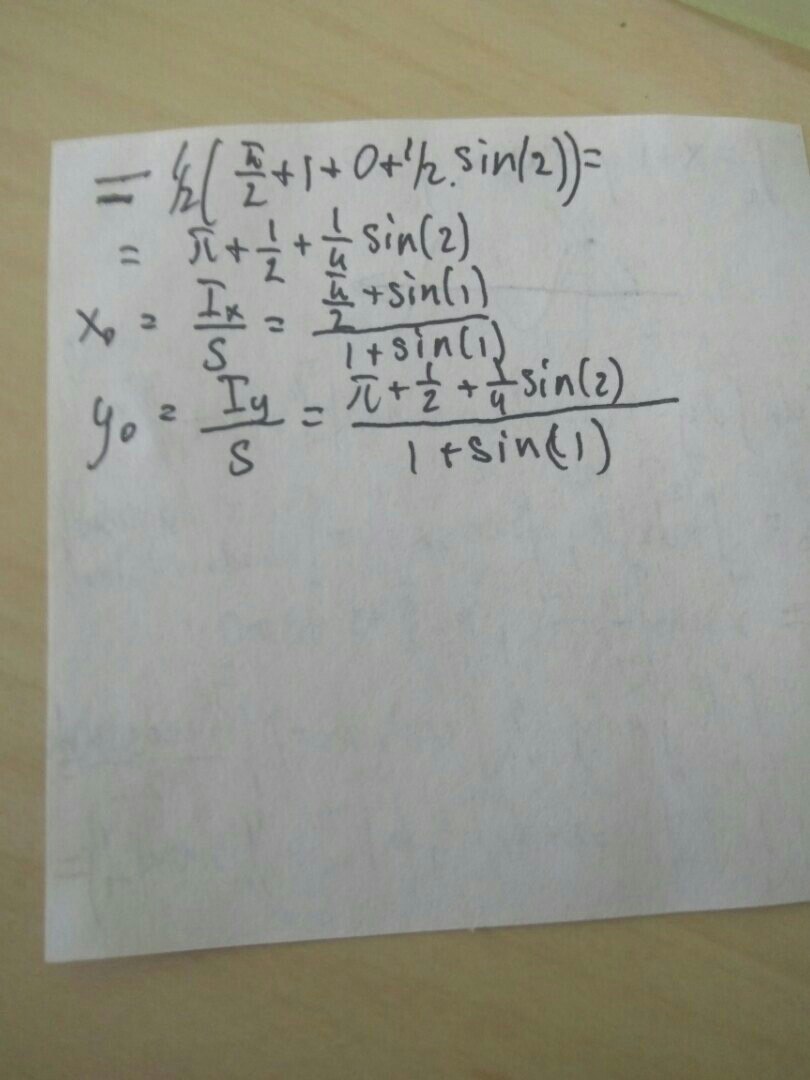 = 1/2(π/2+1+0+1/2.sin(2))=
= π+1/2+1/4 sin(2)
x₀ = Ix/S = (π/2+sin(1))/(1+sin(1))
y₀ = Iy/S = (π+1/2+1/4 sin(2))/(1+sin(1))